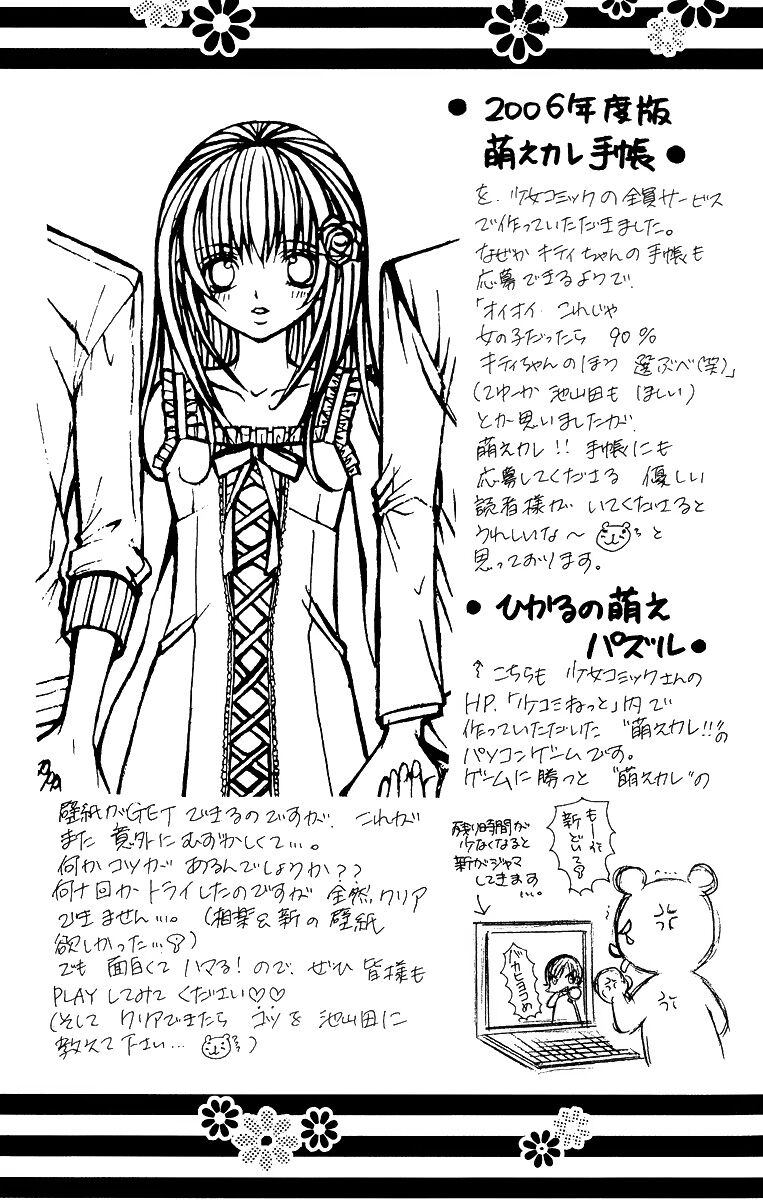 ● 2006年度版
萌えカレ手帳●
を、少女コミックの全員サービス
で作っていただきました。
なぜか キティちゃんの手帳も
応募できるようで、
「オイオイ これじゃ
女の子だったら 90%
キティちゃんのほう 選ぶべ(笑)」
(てゆーか 池山田も ほしい)
とか思いましたが、
萌えカレ!! 手帳にも
応募してくださる 優しい
読者様が いてくださると
うれしいな〜 と
思っております。
● ひかるの萌え
パズル●
↑こちらも 少女コミックさんの
HP、「少コミねっと」内で
作っていただいた "萌えカレ!!"の
パソコンゲームです。
ゲームに勝つと "萌えカレ"の
壁紙がGET できるのですが、これが
また 意外にむずかしくて…。
何かコツが あるんでしょうか??
何十回かトライしたのですが 全然クリア
できません…。(相葉&新の壁紙
欲しかった…)
でも 面白くて ハマる!ので、ぜひ 皆様も
PLAYしてみて ください♡♡
(そして クリアできたら コツを 池山田に
教えて下さい… )
残り時間が
少なくなると
新がジャマ
してきます
…。
もー
新
どいて